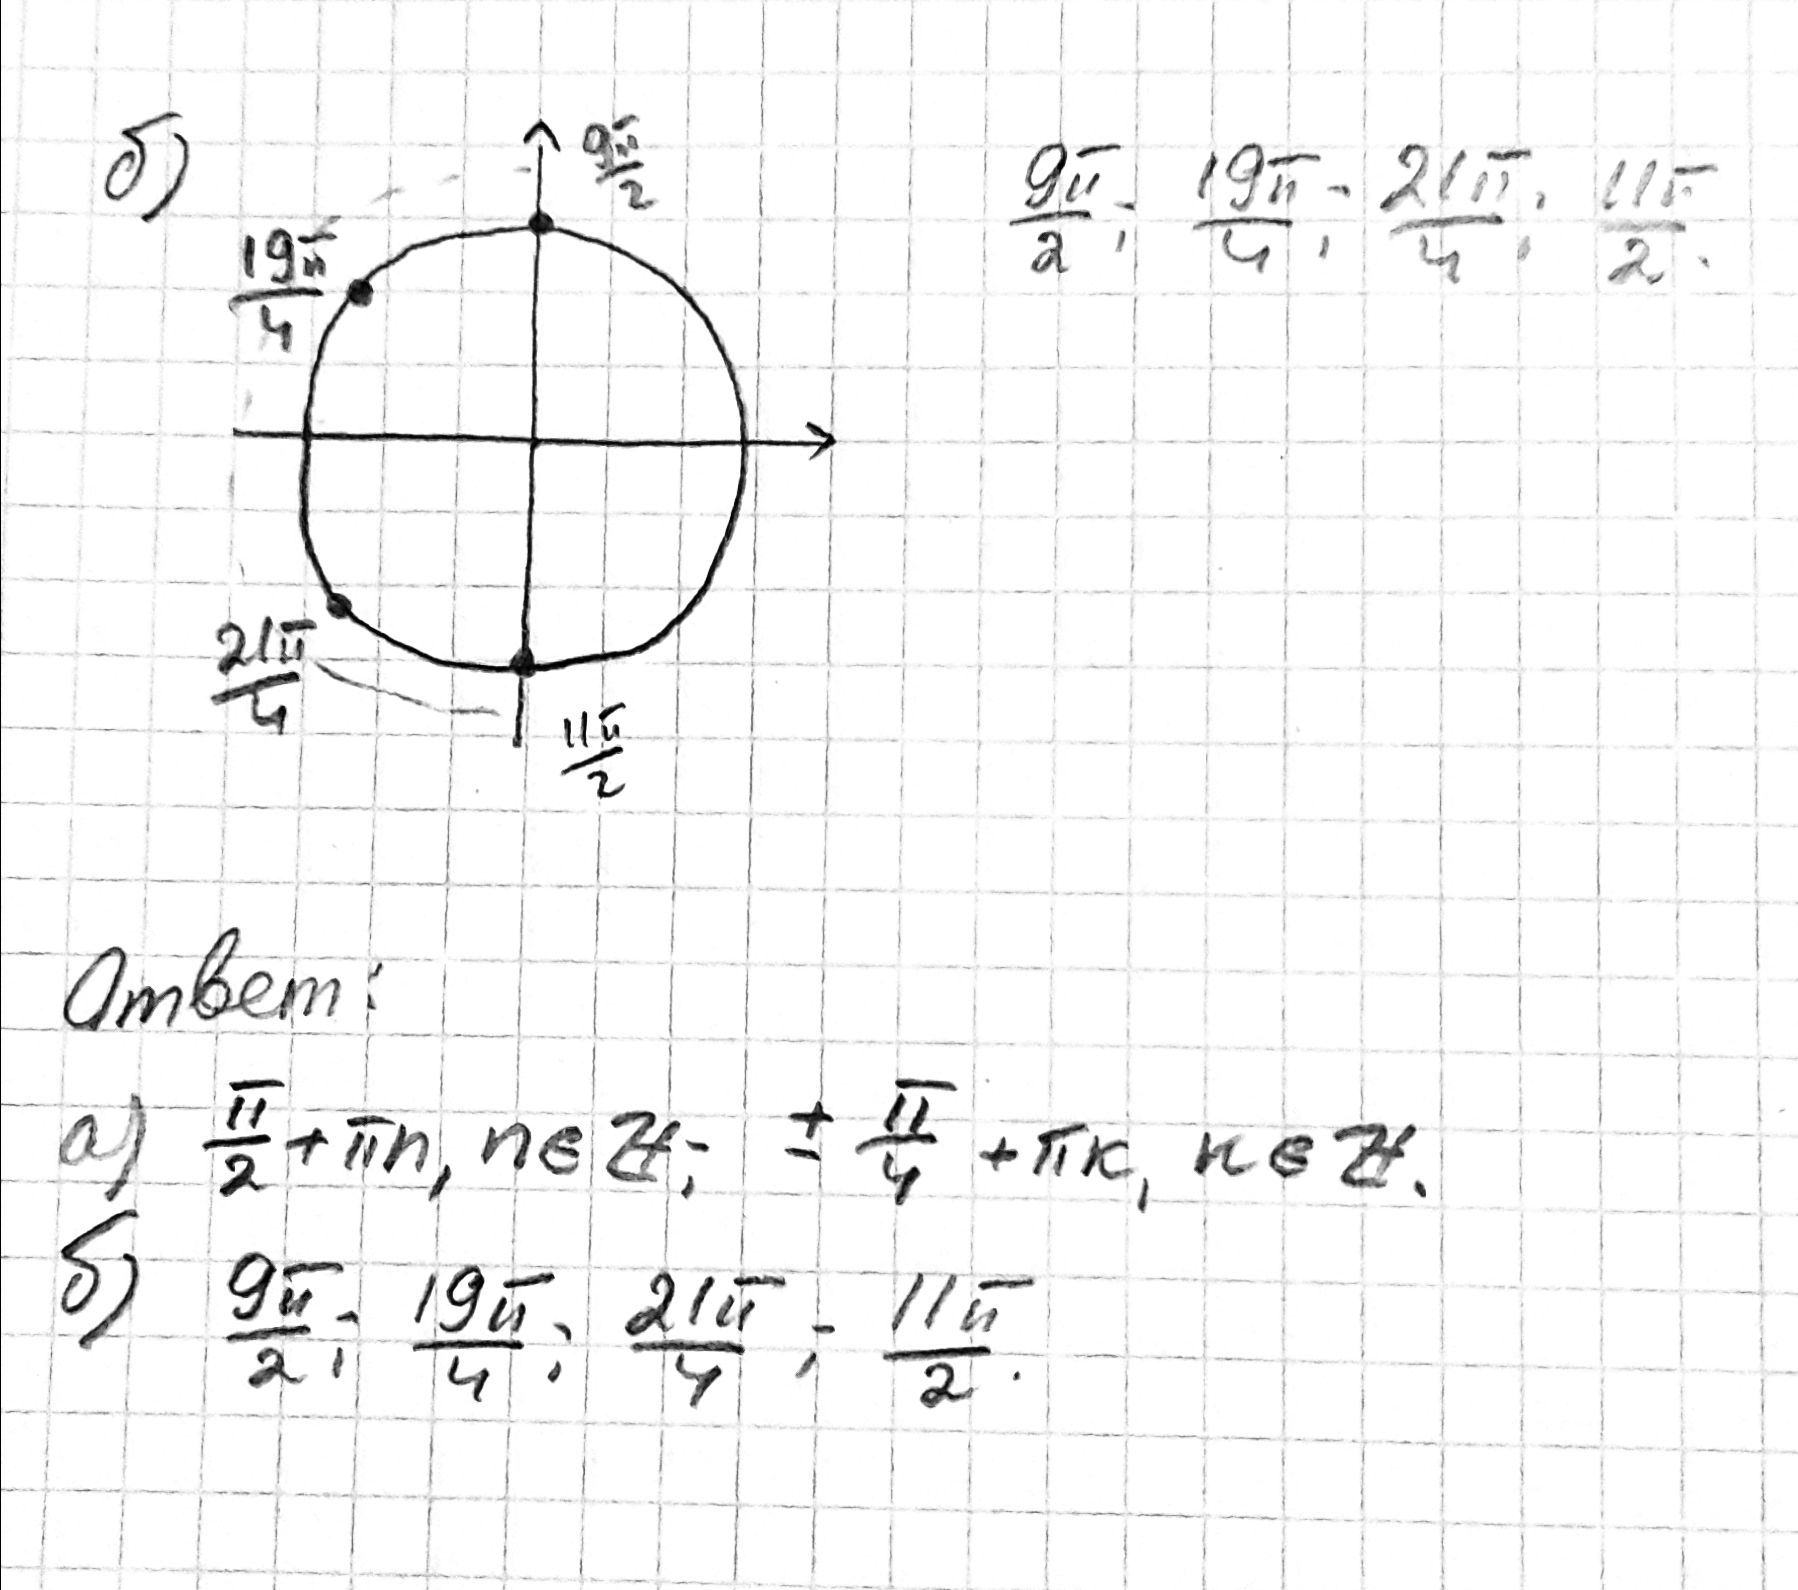 б)
9π/2
19π/4
21π/4
11π/2
9π/2; 19π/4; 21π/4; 11π/2.
Ответ:
а) π/2 + πn, n∈Z; ± π/4 + πк, к∈Z.
б) 9π/2; 19π/4; 21π/4; 11π/2.